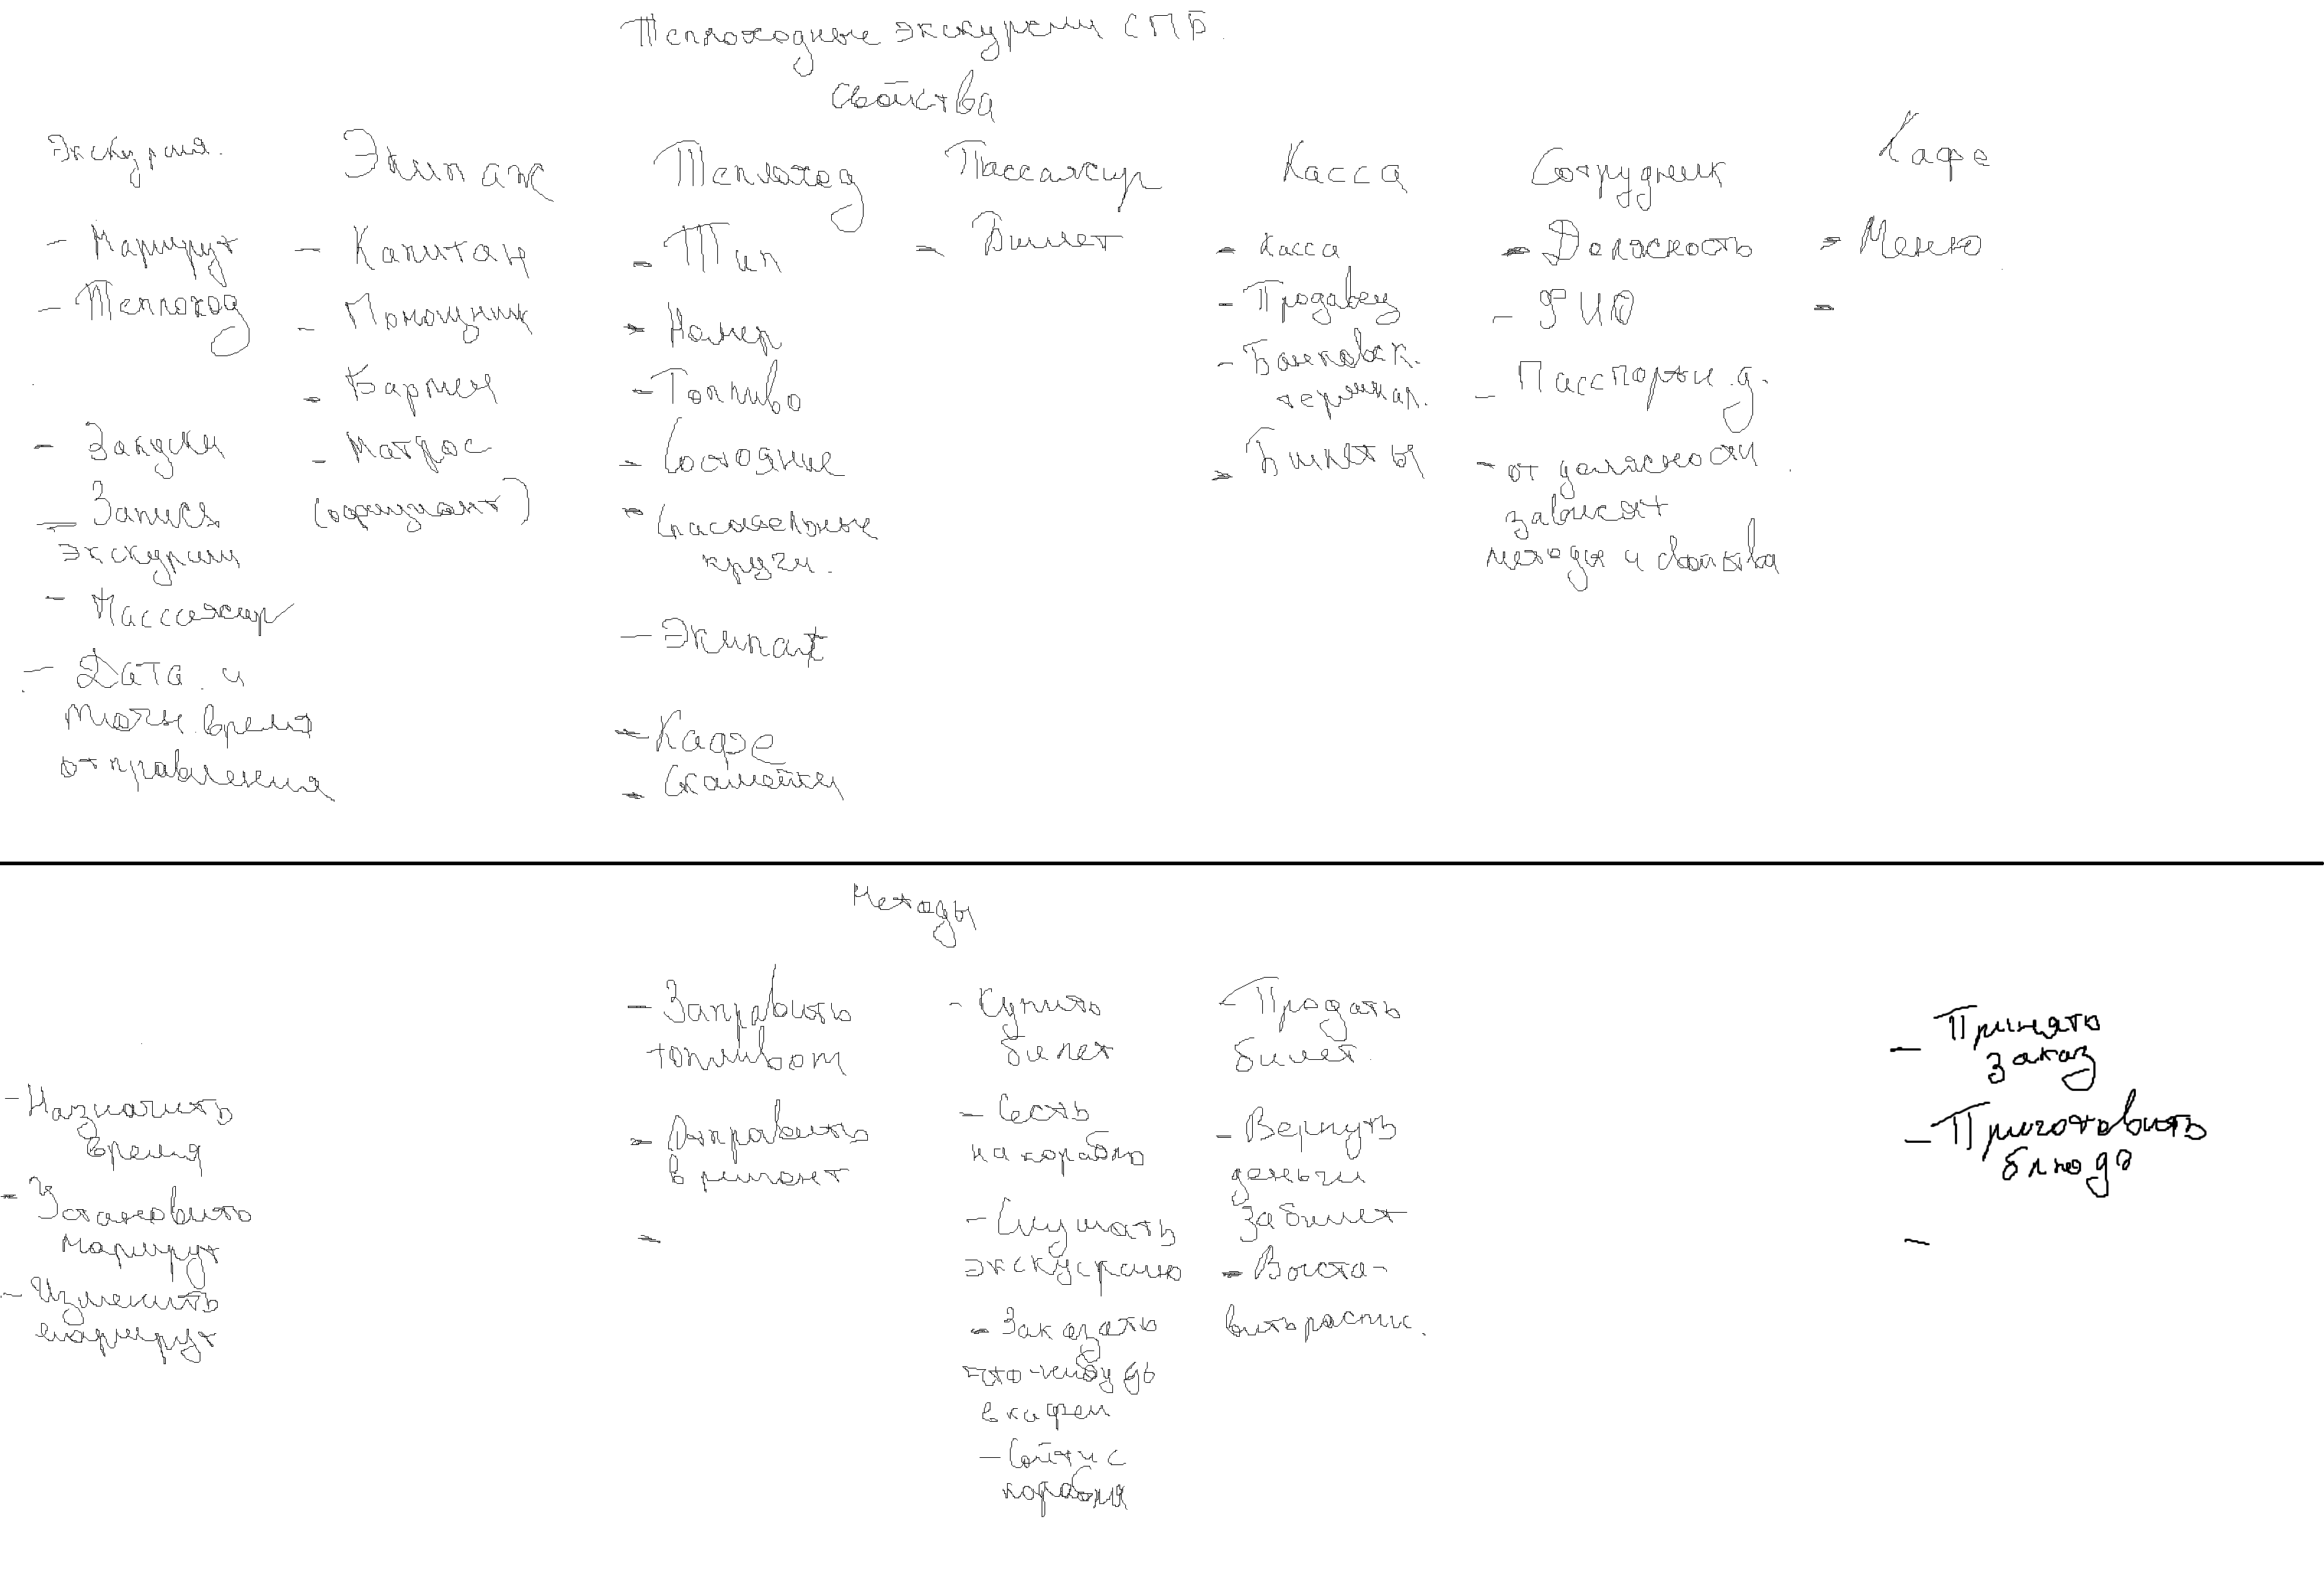 Теплоходные экскурсии СПБ.
Свойства
Экскурсия.
- Маршрут
- Теплоход
- Закуски
- Запись
экскурсии
- Пассажир
- Дата и
точн. время
отправления
Экипаж
- Капитан
- Помощник
- Бармен
- Матрос
(официант)
Теплоход
- Тип
- Номер
- Топливо
- Состояние
- Спасательные
круги.
- Экипаж
- Кафе
- Скамейки
Пассажир
- Билет
Касса
- Касса
- Продавец
- Банковск.
терминал.
- Билеты
Сотрудник
- Должность
- ФИО
- Пасспортн. д.
- от должности
зависят
методы и свойства
Кафе
- Меню
-
Методы
- Назначить
время
- Установить
маршрут
- Изменить
маршрут
- Заправить
топливом
- Отправить
в ремонт
-
- Купить
билет
- Сесть
на корабль
- Слушать
экскурсию
- Заказать
что-нибудь
в кафеи
- Сойти с
корабля
- Продать
билет.
- Вернуть
деньги
за билет
- Выста-
вить распис.
- Принять
заказ
- Приготовить
блюдо
-